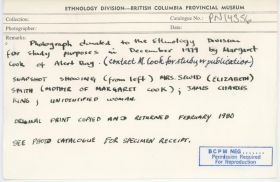 ETHNOLOGY DIVISION—BRITISH COLUMBIA PROVINCIAL MUSEUM
Collection: Catalogue No.: PN14356
Photographer: Date:
Remarks:
Photograph donated to the Ethnology Division
for study purposes in December 1979 by Margaret
Cook of Alert Bay. (contact M. Cook for study or publication)
SNAPSHOT SHOWING (from left) MRS. SEWID (ELIZABETH)
SMITH (MOTHER OF MARGARET COOK); JAMES CHARLES
KING; UNIDENTIFIED WOMAN.
ORIGINAL PRINT COPIED AND RETURNED FEBRUARY 1980
SEE PHOTO CATALOGUE FOR SPECIMEN RECEIPT.
BCPM NEG
Permission Required
For Reproduction